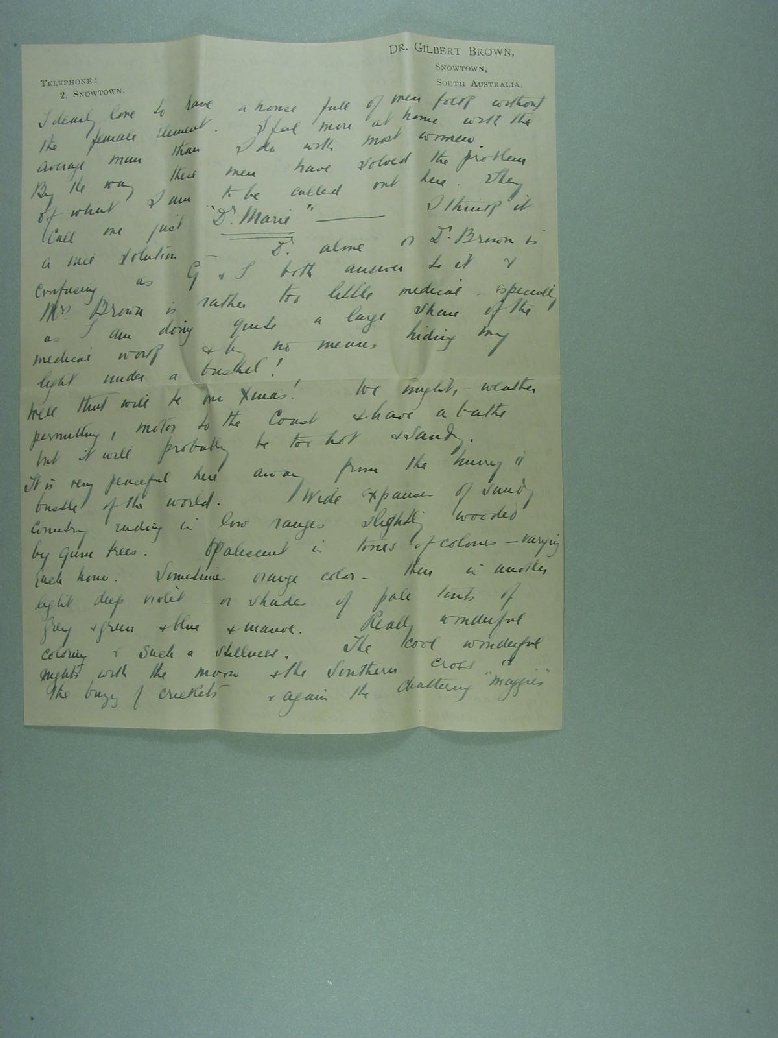 DR. GILBERT BROWN,
SNOWTOWN,
SOUTH AUSTRALIA.
TELEPHONE:
2, SNOWTOWN.
I dearly love to have a house full of men folk without
the female element. I feel more at home with the
average man than I do with most women.
By the way these men have solved the problem
of what I am to be called out here. They
call me just "Dr. Marie" — I think it
a nice solution — Dr. alone or Dr. Brown is
confusing as G & I both answer to it &
Mrs Brown is rather too little medical - especially
as I am doing quite a large share of the
medical work & by no means hiding my
light under a bushel!
Well that will be our Xmas! We might, weather
permitting, motor to the Coast & have a bathe
but it will probably be too hot & sandy.
It is very peaceful here away from the hurry &
bustle of the world. Wide expanses of
country ending in low ranges slightly wooded
by gum trees. Opalescent in tones of colours - varying
each hour. Sometime orange color - then in another
light deep violet or shades of pale tints of
grey & green & blue & mauve. Really wonderful
coloring & such a stillness. The cool wonderful
nights with the moon & the Southern Cross &
the buzz of crickets & again the chattering "maggies"